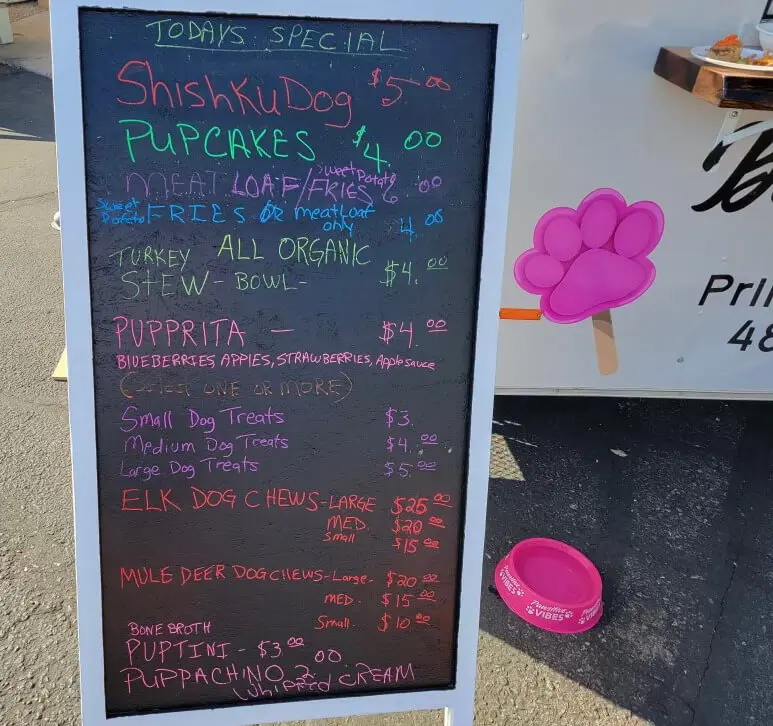 TODAYS SPECIAL
ShishKuDog $5.00
PUPCAKES $4.00
MEAT LOAF/Sweet Potato FRIES 6.00
Sweet Potato FRIES OR meatloaf only 4.00
TURKEY ALL ORGANIC
STEW - BOWL - $4.00
PUPPRITA - $4.00
BLUEBERRIES, APPLES, STRAWBERRIES, Applesauce
(Select ONE OR MORE)
Small Dog Treats $3.
Medium Dog Treats $4.00
Large Dog Treats $5.00
ELK DOG CHEWS - LARGE $25.00
MED. $20.00
Small $15.00
MULE DEER DOG CHEWS - Large - $20.00
MED. $15.00
Small. $10.00
BONE BROTH
PUPTINI - $3.00
PUPPACHINO 2.00
Whipped CREAM
Pawsitive VIBES
Pawsitive VIBES
48